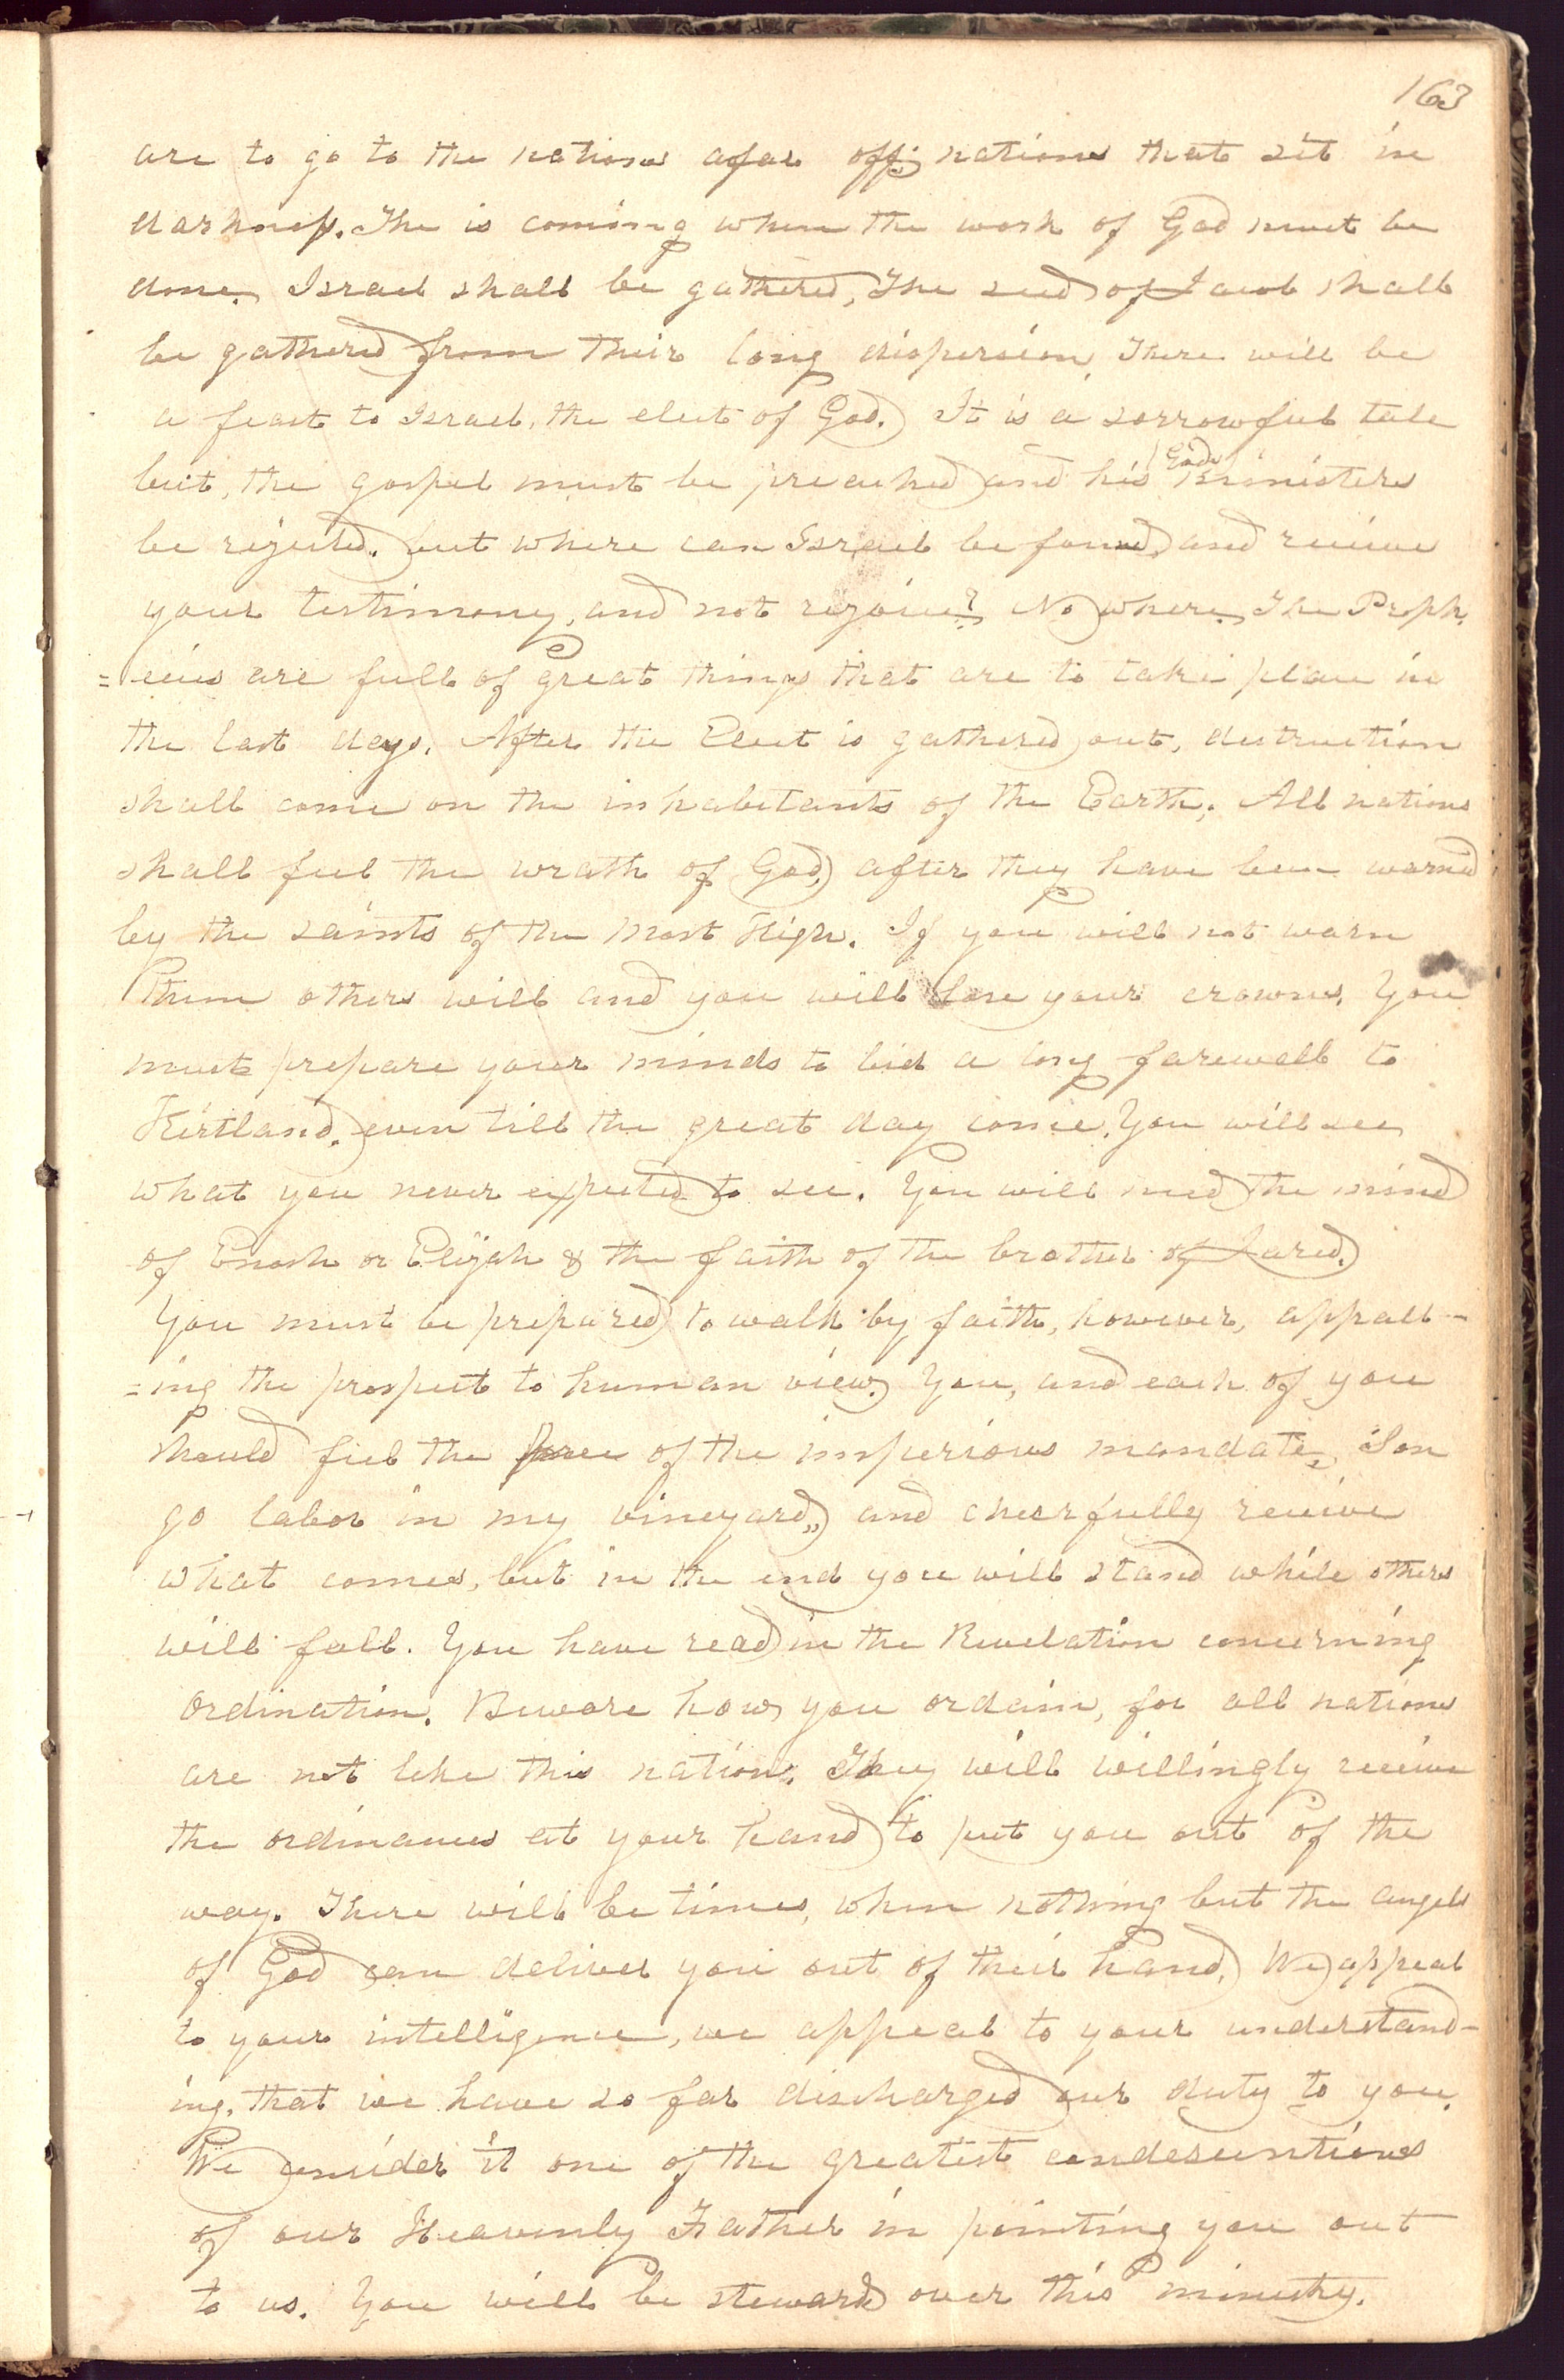 163
are to go to the nations afar off; nations that sit in
darkness. The is coming when the work of God must be
done. Israel shall be gathered, The seed of Jacob shall
be gathered from their long dispersion. There will be
a feast to Israel, the elect of God. It is a sorrowful tale
but, the gospel must be preached and his God's ministers
be rejected. but where can Israel be found, and receive
your testimony, and not rejoice? No where. The Proph,
=ecies are full of great things that are to take place in
the last days. After the Elect is gathered out, destruction
shall come on the inhabitants of the Earth; All nations
shall feel the wrath of God, after they have been warned
by the saints of the Most High. If you will not warn
them others will and you will lose your crowns. You
must prepare your minds to bid a long farewell to
Kirtland, even till the great day come. You will see
what you never expected to see. You will need the mind
of Enoch or Elijah & the faith of the brother of Jared.
You must be prepared to walk by faith, however, appall-
=ing the prospect to human view. You, and each of you
should feel the force of the imperious mandate, Son
go labor in my vineyard," and cheerfully receive
what comes, but in the end you will stand while others
will fall. You have read in the Revelation concerning
Ordination. Beware how you ordain, for all nations
are not like this nation. They will willingly receive
the ordinances at your hand to put you out of the
way. There will be times, when nothing but the angels
of God can deliver you out of their hand. We appeal
to your intelligence, we appeal to your understand-
ing, that we have so far discharged our duty to you.
We consider it one of the greatest condescentions
of our Heavenly Father in pointing you out
to us. You will be stewards over this ministry.